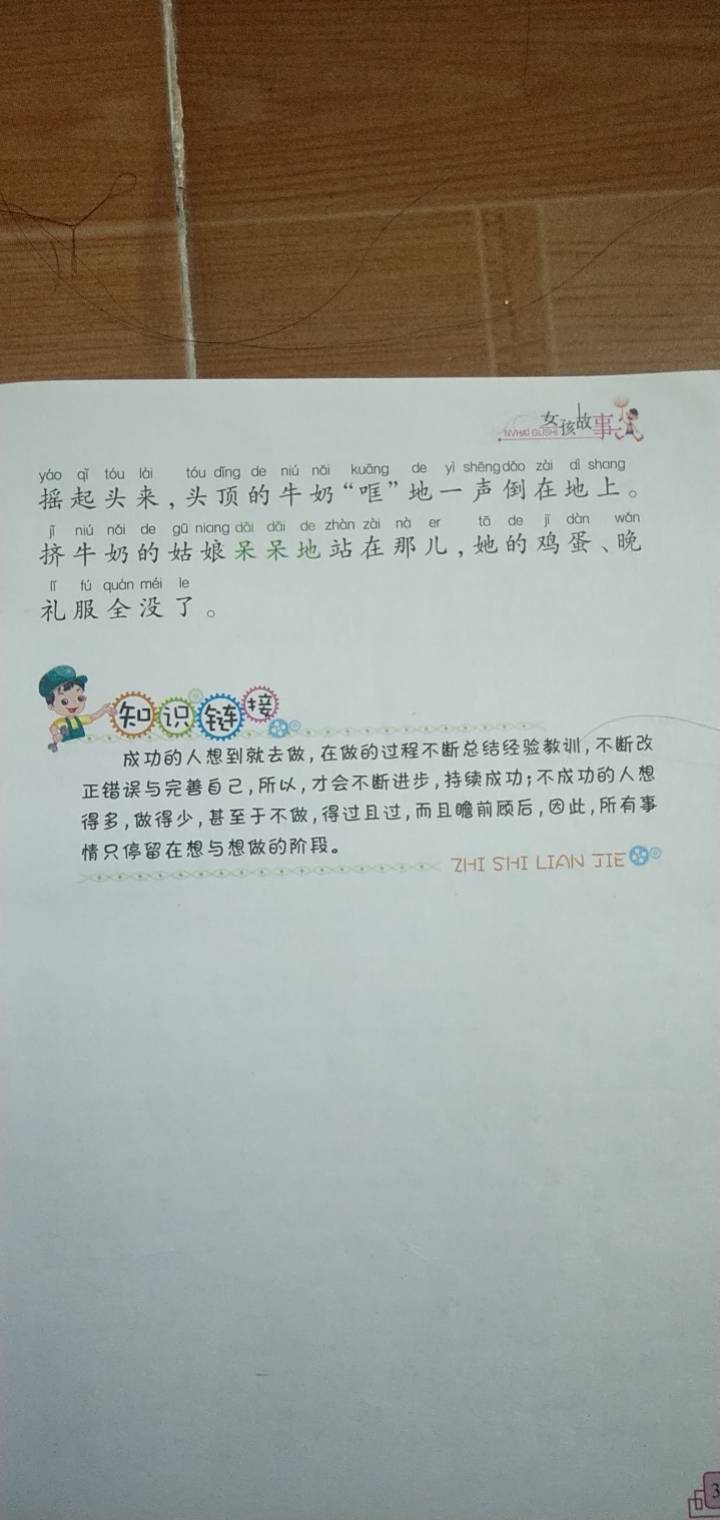 女孩故事
NVHAI GUSHI
yáo qǐ tóu lái tóu dǐng de niú nǎi kuāng de yì shēng dǎo zài dì shang
摇起头来，头顶的牛奶“哐”地一声倒在地上。
jǐ niú nǎi de gū niang dāi dāi de zhàn zài nà er tā de jī dàn wǎn
挤牛奶的姑娘呆呆地站在那儿，她的鸡蛋、晚
lǐ fú quán méi le
礼服全没了。
知识链接
成功的人想到就去做，在做的过程不断总结经验教训，不断改
正错误与完善自己，所以，才会不断进步，持续成功；不成功的人想
得多，做得少，甚至于不做，得过且过，而且瞻前顾后，因此，所有事
情只停留在想与想做的阶段。
ZHI SHI LIAN JIE